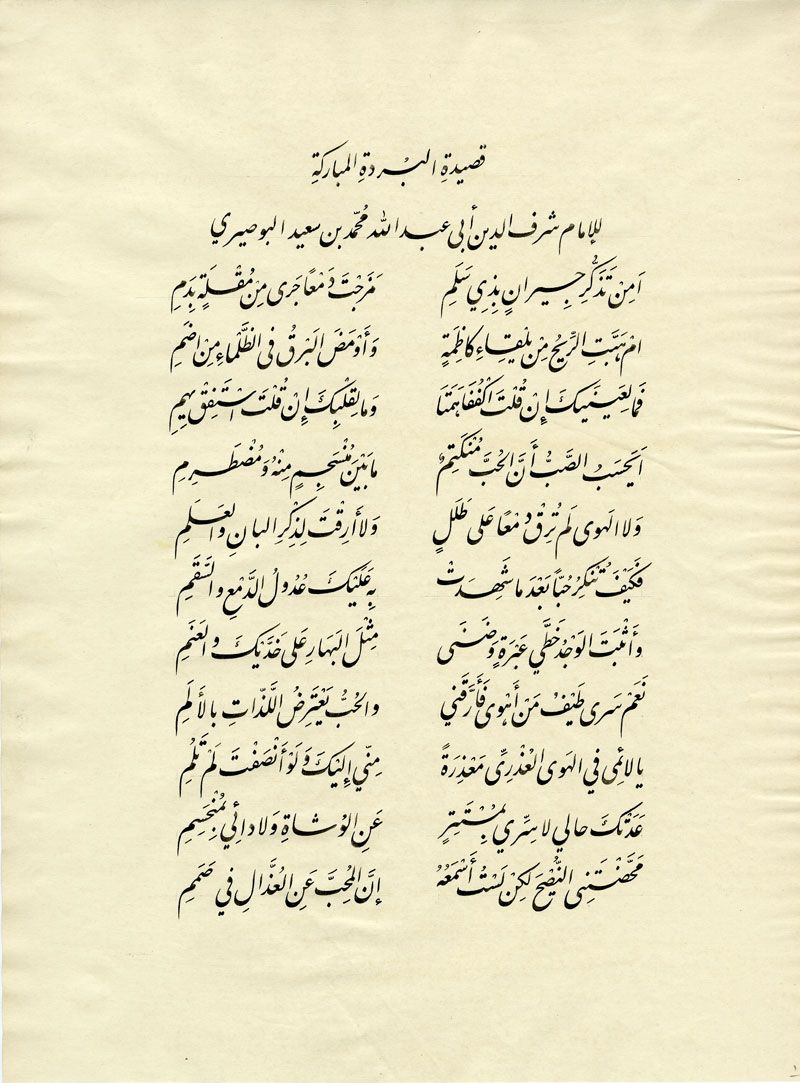 قصيدة البردة المباركة
للإمام شرف الدين أبي عبد الله محمّد بن سعيد البوصيري
اَمِنْ تَذَكُّرِ جِيرانٍ بِذِي سَلَمِ مَزَجْتَ دَمْعًا جَرى مِنْ مُقْلَةٍ بِدَمِ
امْ هَبَّتِ الرِّيحُ مِنْ تِلْقاءِ كاظِمَةٍ وَأَوْمَضَ البَرْقُ في الظَّلْماءِ مِنْ اِضَمِ
فَما لِعَيْنَيْكَ إِنْ قُلْتَ اكْفُفا هَمَتا وَما لِقَلْبِكَ إِنْ قُلْتَ اسْتَفِقْ يَهِمِ
اَيَحْسَبُ الصَّبُّ أَنَّ الحُبَّ مُنْكَتِمٌ ما بَيْنَ مُنْسَجِمٍ مِنْهُ وَمُضْطَرِمِ
لولا الهوى لَم تُرِقْ دمْعًا عَلى طَلَلٍ وَلا أَرِقْتَ لِذِكْرِ البانِ والعَلَمِ
فَكَيْفَ تُنْكِرُ حُبّاً بَعْدَ ما شَهِدَتْ بِهِ عَلَيْكَ عُدُولُ الدَّمْعِ والسَّقَمِ
وَأَثْبَتَ الوَجْدُ خَطَّي عَبْرَةٍ وَضَنَى مِثْلَ البَهارِ عَلى خَدَّيْكَ والعَنَمِ
نَعَمْ سَرى طَيْفُ مَنْ أَهْوى فَأَرَّقَني والحُبُّ يَعْتَرِضُ اللَّذّاتِ بالأَلَمِ
يا لائِمى في الهَوى العُذْرِىِّ مَعْذِرَةً مِنّي إِلَيْكَ وَلَوْ أَنْصَفْتَ لَمْ تَلُمِ
عَدَتْكَ حالي لا سِرِّي بِمُسْتَتِرٍ عَنِ الوُشاةِ وَلا دائي بِمُنْحَسِمِ
مَحَّضْتَنِى النُّصْحَ لكِنْ لَسْتُ أَسْمَعُهُ إِنَّ المُحِبَّ عَنِ العُذّالِ في صَمَمِ
١